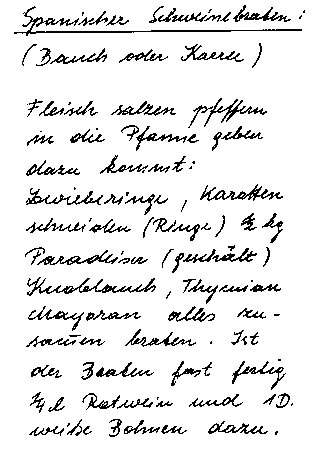 Spanischer Schweinebraten:
(Bauch oder Karree)
Fleisch salzen pfeffern
in die Pfanne geben
dazu kommt:
Zwiebelringe, Karotten
schneiden (Ringe) ½ kg
Paradeiser (geschält)
Knoblauch, Thymian
Mayoran alles zu-
sam̄en braten. Ist
der Braten fast fertig
¼ l Rotwein und 1 D.
weiße Bohnen dazu.